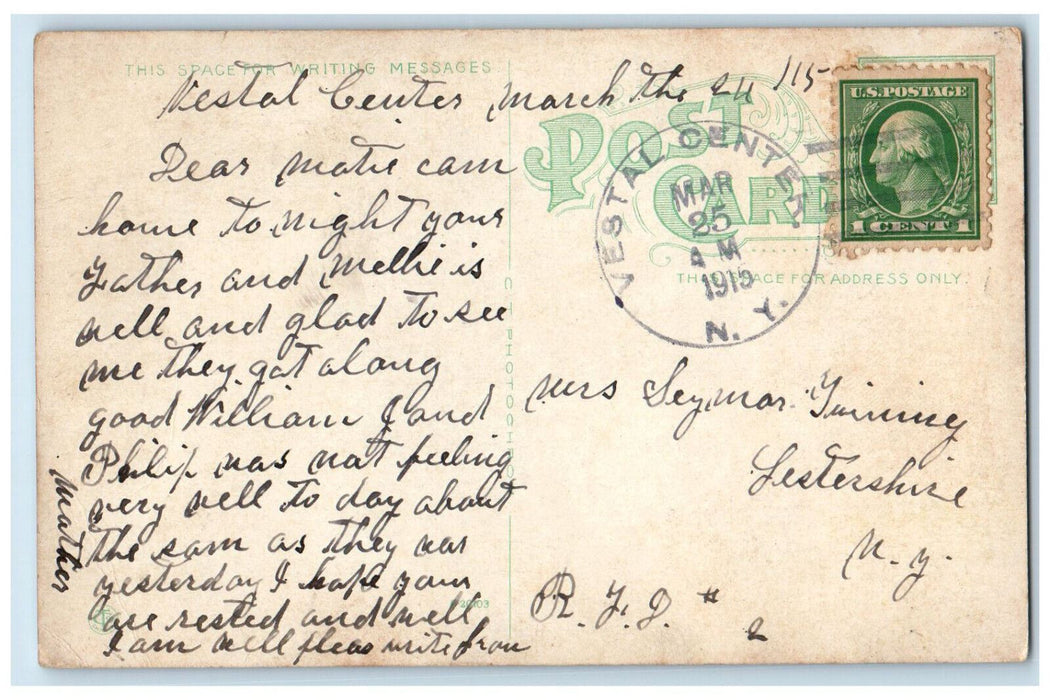 THIS SPACE FOR WRITING MESSAGES
Vestal Center march the 24 /15
Dear matie cam
home to night your
Father and Mellie is
well and glad to see
me they got along
good William J and
Philip was not feeling
very well to day about
the sam as they war
yesterday I hope your
are rested and well
I am well pleas write from
Mother
POST CARD
THIS SPACE FOR ADDRESS ONLY.
VESTAL CENTER
MAR
25
AM
1915
N. Y.
U.S. POSTAGE
1 CENT 1
C T PHOTOCHROM
Mrs Seymor Twining
Lestershire
N. y.
R. F. D. #
2